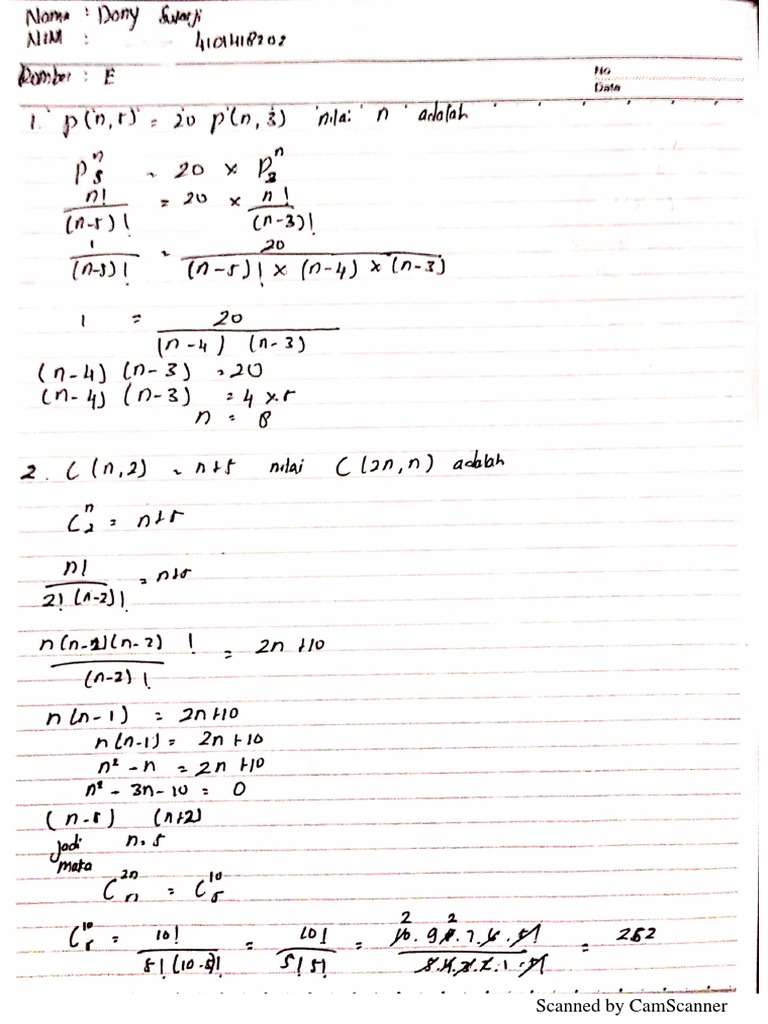 Nama : Dony Sutarji
NIM : 4101418202
Rombel : E
No
Date
1. P(n,5) = 20 P(n,3) nilai n adalah
P n 5 = 20 × P n 3
n! / (n-5)! = 20 × n! / (n-3)!
1 / (n-5)! = 20 / (n-5)! × (n-4) × (n-3)
1 = 20 / (n-4) (n-3)
(n-4) (n-3) = 20
(n-4) (n-3) = 4 × 5
n = 8
2. C (n,2) = n+5 nilai C (2n,n) adalah
C n 2 = n+5
n! / 2! (n-2)! = n+5
n(n-1)(n-2) ! / (n-2) ! = 2n +10
n(n-1) = 2n+10
n(n-1) = 2n+10
n² - n = 2n +10
n² - 3n - 10 = 0
(n-5) (n+2)
jadi n = 5
maka
C 2n n = C 10 5
C 10 5 = 10! / 5! (10-5)! = 10! / 5! 5! = 10.9.8.7.6.5! / 5.4.3.2.1.5! = 252
Scanned by CamScanner